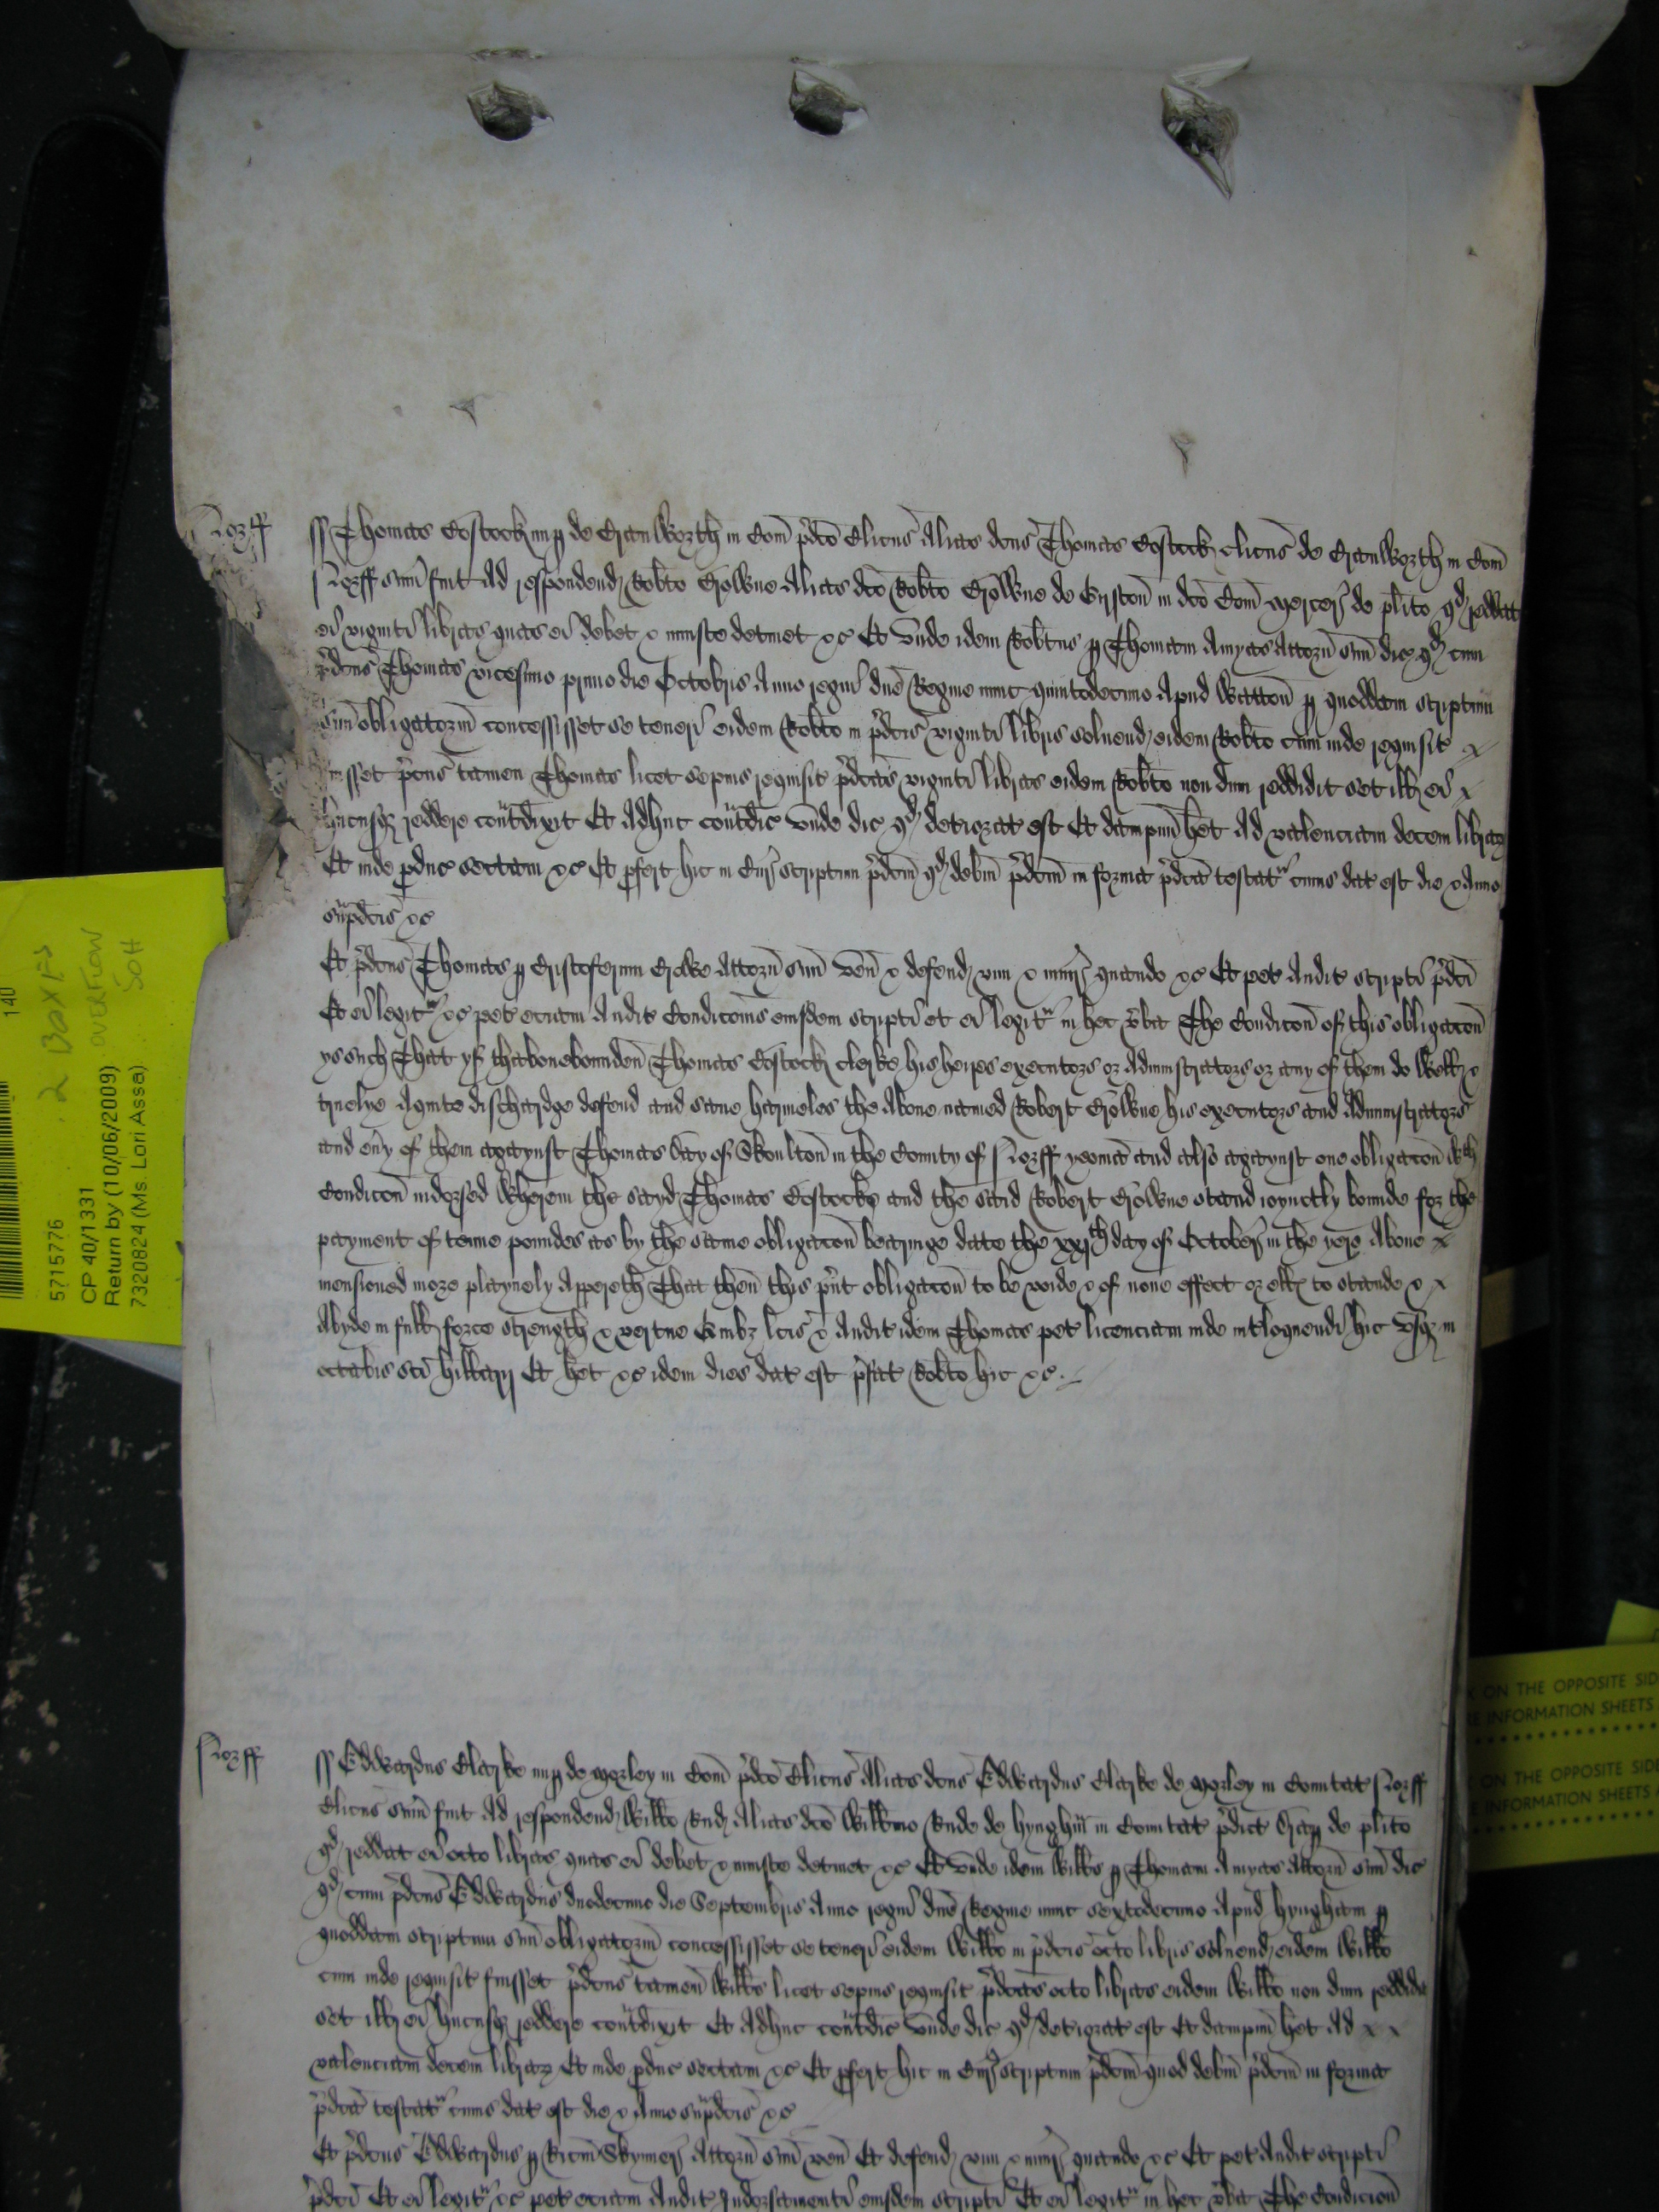 Norff
ss Thomas Costock nup de Cranworth in Com p̄dco Clicus Alias dcus Thomas Costock clicus de Cranworth in Com
Norff sum fuit Ad respondend Robto Crowne Alias dco Robto Crowne de Griston in dco Com mercer de plito qd reddat
ei viginti libras quas ei debet & iniuste detinet &c Et unde idem Robtus p Thomam Amyas Attorn suu dic qd cum
p̄dcus Thomas vicesimo primo die Octobris Anno regni dne Regine nunc quintodecimo Apud Watton p quoddam scriptum
suu obligatoriu concessisset se teneri eidem Robto in p̄dcis viginti libris solvend eidem Robto cum inde requisit
fuisset p̄dcus tamen Thomas licet sepius requisit p̄dcas viginti libras eidem Robto non dum reddidit set ill ei
hucusq reddere contdixit Et Adhuc contdic unde dic qd deteriorat est Et dampnu het Ad valenciam decem librar
Et inde pduc sectam &c Et pfert hic in Cur scriptum p̄dcm qd debm p̄dcm in forma p̄dca testat cuius dat est die & Anno
sup̄dcis &c
Et p̄dcus Thomas p Cristoferum Crowe Attorn suu ven & defend vim & iniur quando &c Et pet Audit scripti p̄dci
Et ei legit &c pet eciam Audit Condicois eiusdem scripti et ei legit in hec vba The Condicon of this obligacon
ys such That yf thabovebounden Thomas Costock clerke his heires executors or Administrators or any of them do well &
truelye Aquite dischardge defend and save harmeles the Above named Robert Crowne his executors and Administrators
and evy of them agaynst Thomas Cay of Skoulton in the County of Norff yeoman and also agaynst one obligacon wth
Condicon indorsed Wherein the sayd Thomas Costocke and the said Robert Crowne stand ioynctly bounde for the
payment of tenne poundes as by the same obligacon bearinge date the xxjth day of October in the yere Above
mensioned more playnely Appereth That then this p̄nt obligacon to be voide & of none effect or ells to stande &
Abyde in full force strength & vertue Quibz lcis & Audit idem Thomas pet licenciam inde intloquendi hic usqz in
octabis sci hillarij Et het &c idem dies dat est p̄fat Robto hic &c
Norff
ss Edwardus Clarke nup de Morley in Com p̄dco Clicus Alias dcus Edwardus Clarke de Morley in Comitat Norff
Clicus sum fuit Ad respondend Willo Rud Alias dco Willmo Rude de hyngham in Comitat p̄dict de plito
qd reddat ei octo libras quas ei debet & iniuste detinet &c Et unde idem Wills p Thomam Amyas Attorn suu dic
qd cum p̄dcus Edwardus duodecimo die Septembris Anno regni dne Regine nunc sextodecimo Apud hyngham p
quoddam scriptum suu obligatoriu concessisset se teneri eidem Willo in p̄dcis octo libris solvend eidem Willo
cum inde requisit fuisset p̄dcus tamen Wills licet sepius requisit p̄dcas octo libras eidem Willo non dum reddidit
set ill ei hucusq reddere contdixit Et Adhuc contdic unde dic qd deteriorat est Et dampnu het Ad
valenciam decem librar Et inde pduc sectam &c Et pfert hic in Cur scriptum p̄dcm quod debm p̄dcm in forma
p̄dca testat cuius dat est die & Anno sup̄dcis &c
Et p̄dcus Edwardus p Ricm Skynner Attorn suu ven Et defend vim & iniur quando &c Et pet Audit scripti
p̄dci Et ei legit &c pet eciam Audit Indorsamenti eiusdem scripti Et ei legit in hec vba The Condicion
140
2 BOXES
OVERFLOW
5OH
5715776
CP 40/1331
Return by (10/06/2009)
7320824 (Ms. Lori Assa)
ON THE OPPOSITE SID
INFORMATION SHEETS
ON THE OPPOSITE SIDE
INFORMATION SHEETS